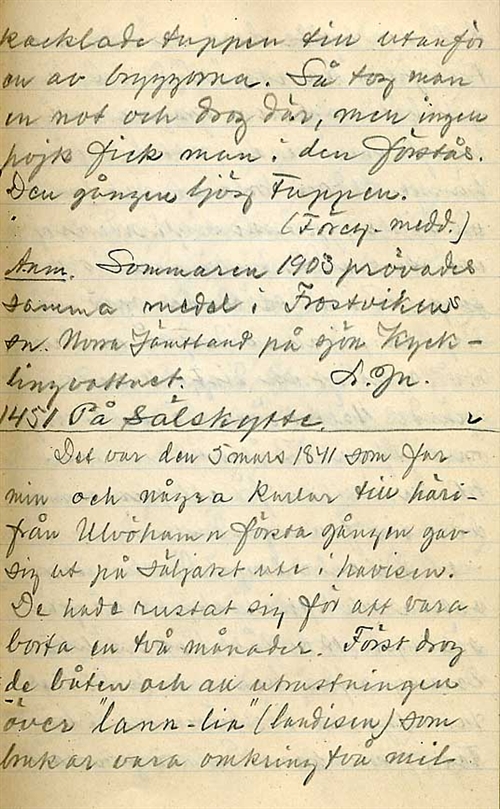 kacklade tuppen till utanför
en av bryggorna. Så tog man
en not och drog där, men ingen
pojk fick man i den förstås.
Den gången ljög Tuppen.
(Föreg. medd.)
Anm. Sommaren 1903 prövades
samma medel i Frostvikens
sn. Norra Jämtland på sjön Kyck-
lingvattnet.
1451 På Sälskytte. 2
Det var den 5 mars 1841 som far
min och några karlar till häri-
från Ulvöhamn första gången gav
sig ut på säljakt ute i havisen.
De hade rustat sig för att vara
borta en två månader. Först drog
de båten och all utrustningen
över "lann-lia" (landisen) som
brukar vara omkring två mil